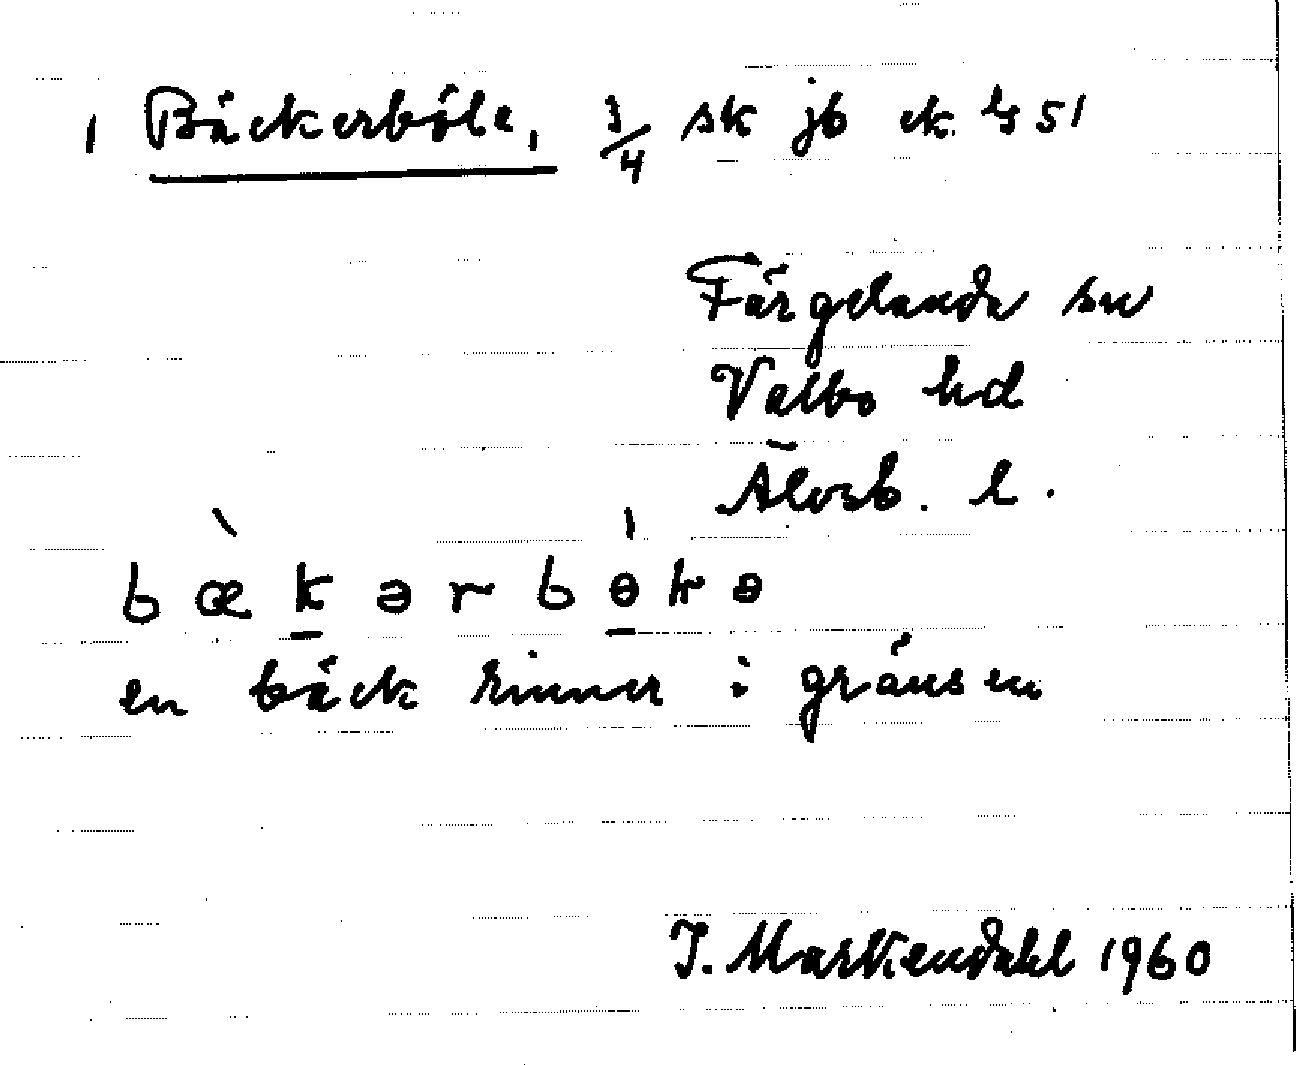 1 Bäckerböle, 3/4 sk jb ek. bl 51
Färgelanda sn
Valbo hd
Älvsb. l.
bæ̀kərbɵ́ɫə
en bäck rinner i gränsen
I. Markendahl 1960